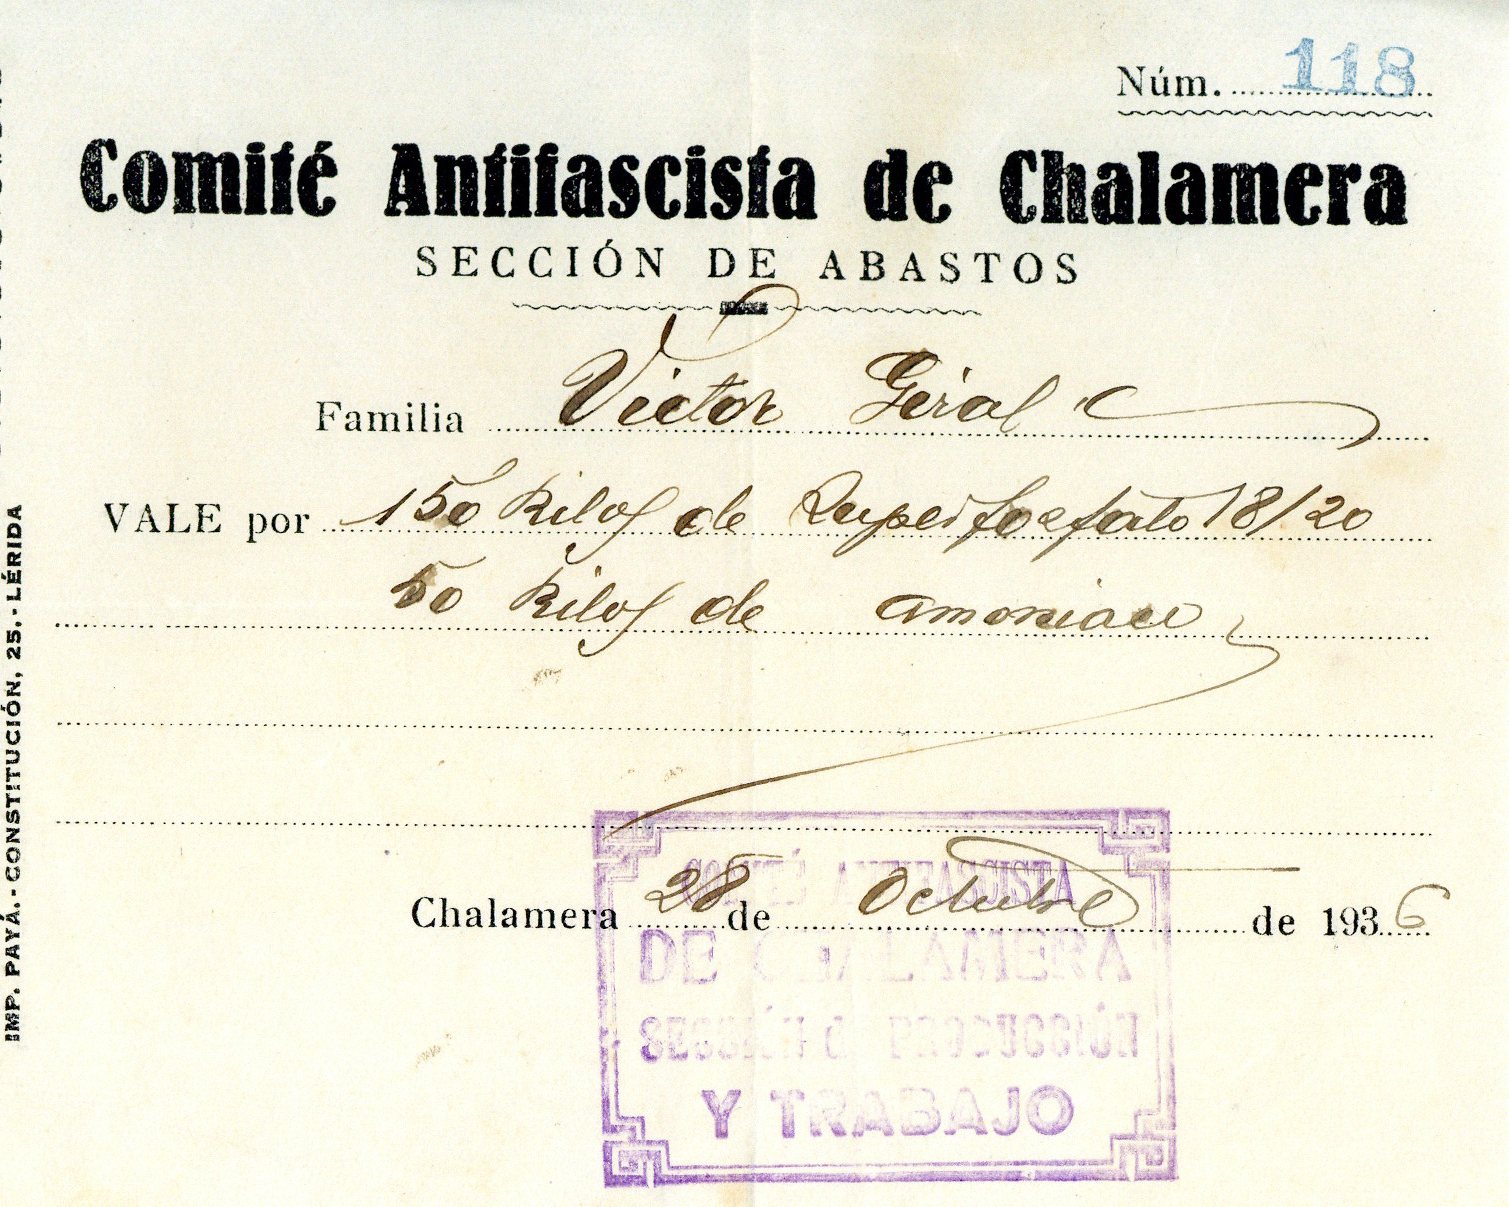 Núm. 118
Comité Antifascista de Chalamera
SECCIÓN DE ABASTOS
Familia Victor Giral C
VALE por 150 Kilos de Superfosfato 18/20
50 Kilos de amoniaco
Chalamera 28 de Octubre de 1936
COMITÉ ANTIFASCISTA
DE CHALAMERA
SECCIÓN d PRODUCCIÓN
Y TRABAJO
IMP. PAYÁ.-CONSTITUCIÓN, 25.-LÉRIDA